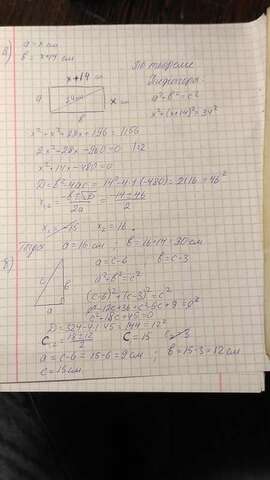 а) a = x см
b = x+14 см
x+14 см
По теореме
Пифагора
a
34см
x см
b
a²+b²=c²
x²+(x+14)²=34²
x²+x²+28x+196=1156
2x²+28x-960=0 |:2
x²+14x-480=0
D=b²-4ac=14²-4·1·(-480)=2116=46²
x₁,₂ = -b±√D / 2a = -14±46 / 2
x₂=16
Тогда a=16см; b=16+14=30см
б)
a=c-6
b=c-3
c
b
a
a²+b²=c²
(c-6)²+(c-3)²=c²
c²-18c+45=0
D=324-4·1·45=144=12²
C₁,₂ = 18±12 / 2
C=15
c=3
a=c-6=15-6=9см; b=15-3=12см
c=15см